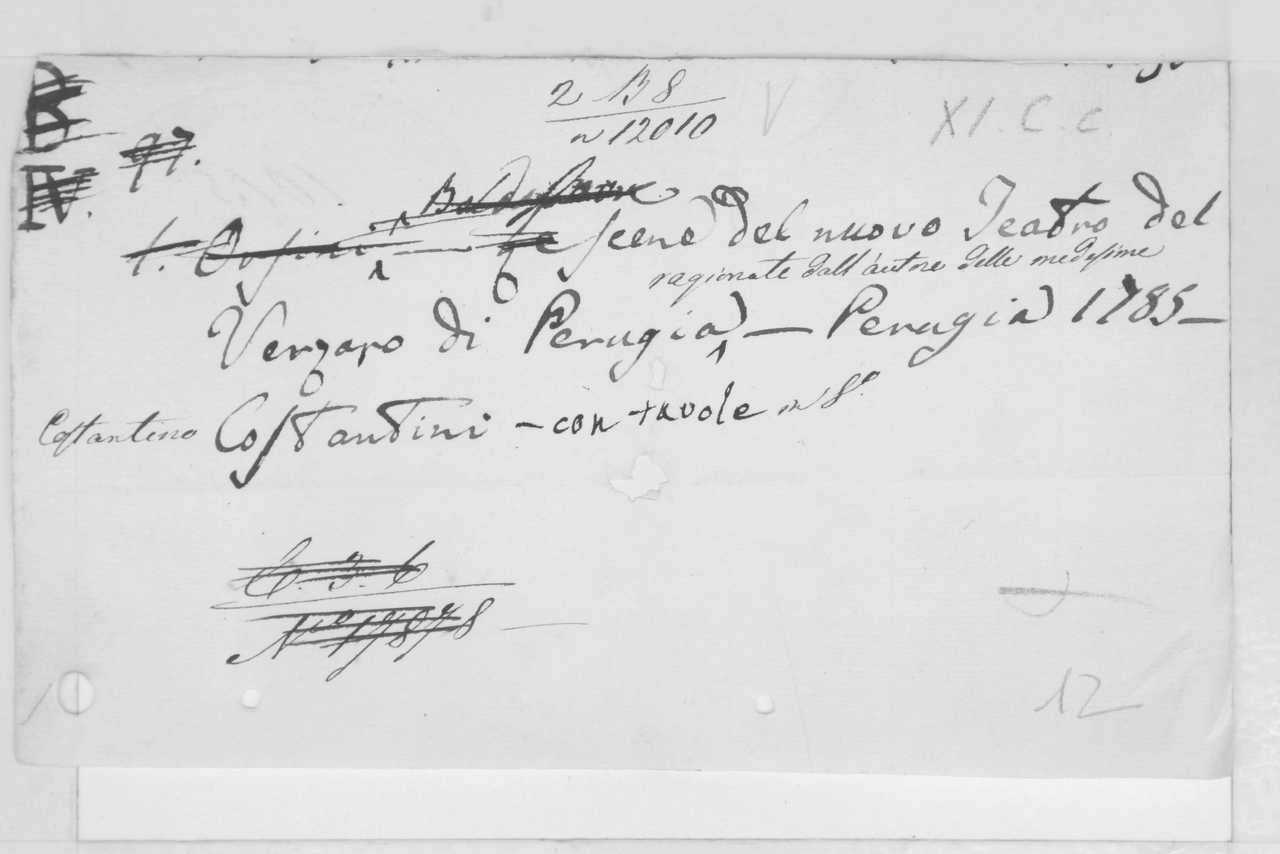 2 B 8
n 12010
V
XI. C. c.
B
IV. 97.
1. Orsini, Baldassarre — Le Scene del nuovo Teatro del
ragionate dall'autore delle medesime
Verzaro di Perugia — Perugia 1785 —
Costantino Costantini — con tavole in 8.º
C. 3. 6
N.º 17878 —
12